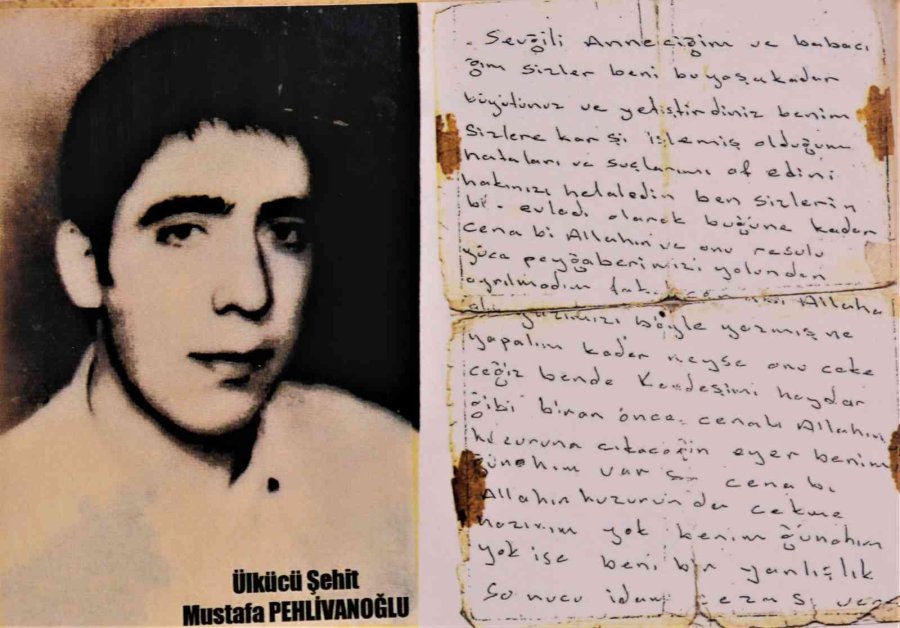 Sevğili Anneciğim ve babacı
ğım sizler beni bu yaşa kadar
büyütünüz ve yetiştirdiniz benim
sizlere karşi işlemiş olduğum
hataları ve suçlarımı af edini
hakınızı helaledin ben sizlerin
bi evladı olarak buğüne kadar
cena bi Allahın ve onu resulu
yüce peyğaberimizi yolundan
ayrılmadım Allaha
yazımızı böyle yazmış ne
yapalım kader neyse onu ceke
ceğiz bende Kardeşimi haydar
ğibi biran önce cenabı Allahın
huzuruna cıkacağım eyer benim
ğünahım var sa cena bi
Allahın huzurunda cekme
hazırım yok benim ğünahım
yok ise beni bir yanlışlık
sonucu idam ceza sı ver
Ülkücü Şehit
Mustafa PEHLİVANOĞLU